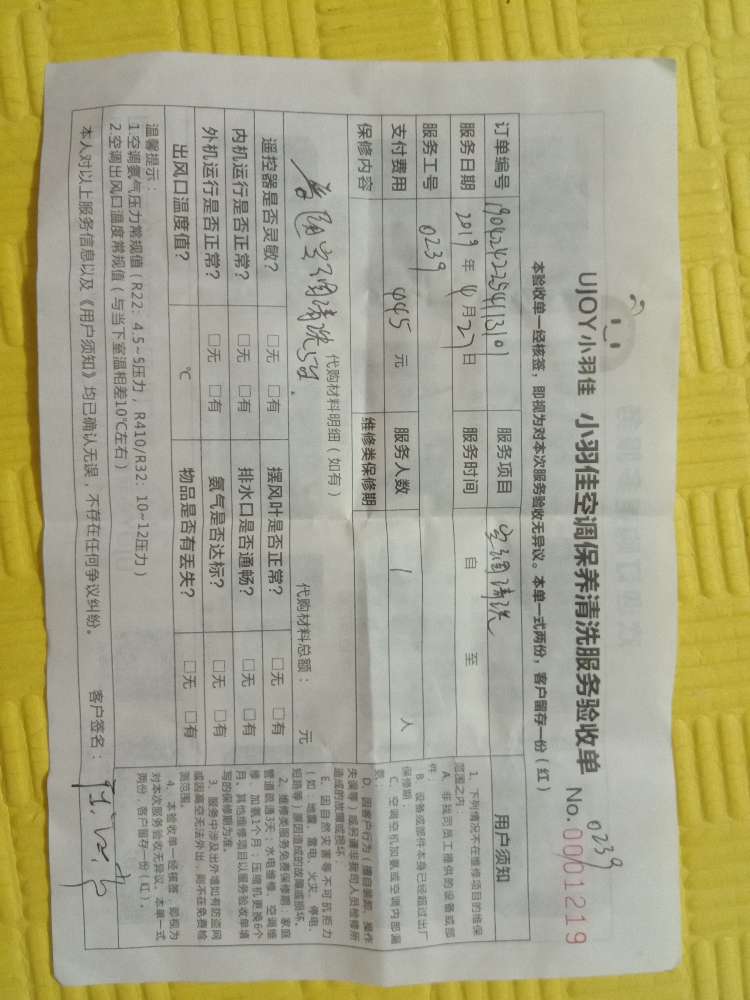 UJOY小羽佳 小羽佳空调保养清洗服务验收单
No. 0001219
0239
本验收单一经核签，即视为对本次服务验收无异议。本单一式两份，客户留存一份（红）
订单编号 服务项目 空调清洗
服务日期 2019年4月27日 服务时间 自 至
服务工号 0239
支付费用 445元 服务人数 1人
保修内容 维修类保修期
代购材料明细（如有） 代购材料总额： 元
空调清洗5台
遥控器是否灵敏？ □无 □有 摆风叶是否正常？ □无 □有
内机运行是否正常？ □无 □有 排水口是否通畅？ □无 □有
外机运行是否正常？ □无 □有 氨气是否达标？ □无 □有
出风口温度值？ ℃ 物品是否有丢失？ □无 □有
温馨提示：
1.空调氨气压力常规值（R22：4.5~5压力，R410/R32：10~12压力）
2.空调出风口温度常规值（与当下室温相差10℃左右）
本人对以上服务信息以及《用户须知》均已确认无误，不存在任何争议纠纷。 客户签名：
用户须知
1、下列情况不在维修项目的维保
范围之内：
A、非我司员工提供的设备或部
件；
B、设备或部件本身已经超过出厂
保修期；
C、空调空机加氨或空调内部漏
氨；
D、因客户行为（擅自装卸、操作
失误等）或另请非我司人员检修所
造成的故障或损坏；
E、因自然灾害等不可抗拒力
（如：地震、雷电、火灾、停电、
短路等）原因造成的故障或损坏。
2、维修类服务免费保修期：家庭
管道疏通3天；水电维修、空调维
修、加氨1个月；压缩机更换6个
月，其他维修项目以服务验收单填
写的保修期为准。
3、服务中涉及出外墙如有防盗网
或因高空无法外出，则不在免费检
测范围。
4、本验收单一经核签，即视为
对本次服务验收无异议。本单一式
两份，客户留存一份（红）。